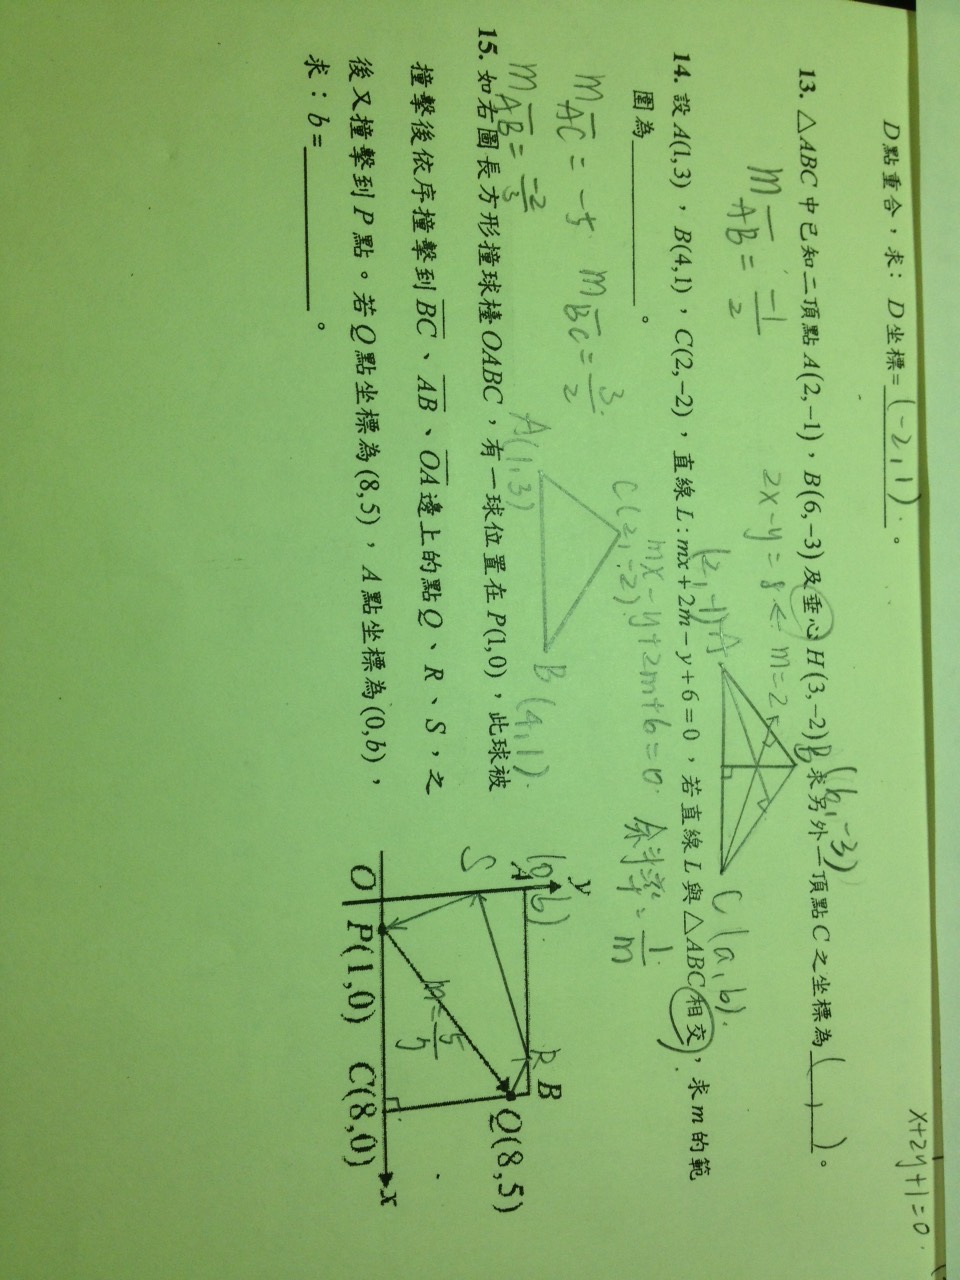 x+2y+1=0
D點重合，求：D坐標=(-2,1)。
13. △ABC中已知二頂點A(2,-1)，B(6,-3)及垂心H(3,-2)，求另外一頂點C之坐標為( , )。
B(6,-3)
m AB = -1/2
2x-y=8 ← m=2
(2,-1)A
C(a,b)
14. 設A(1,3)，B(4,1)，C(2,-2)，直線L:mx+2m-y+6=0，若直線L與△ABC相交，求m的範
圍為
。
mx-y+2m+6=0
斜率=
m AC = -5
m BC = 3/2
m AB = -2/3
C(2,-2)
A(1,3)
B(4,1)
15. 如右圖長方形撞球檯OABC，有一球位置在P(1,0)，此球被
撞擊後依序撞擊到BC、AB、OA邊上的點Q、R、S，之
後又撞擊到P點。若Q點坐標為(8,5)，A點坐標為(0,b)，
求：b=
。
y
(0,b)
A
R
B
S
Q(8,5)
m=5/7
O
P(1,0)
C(8,0)
x